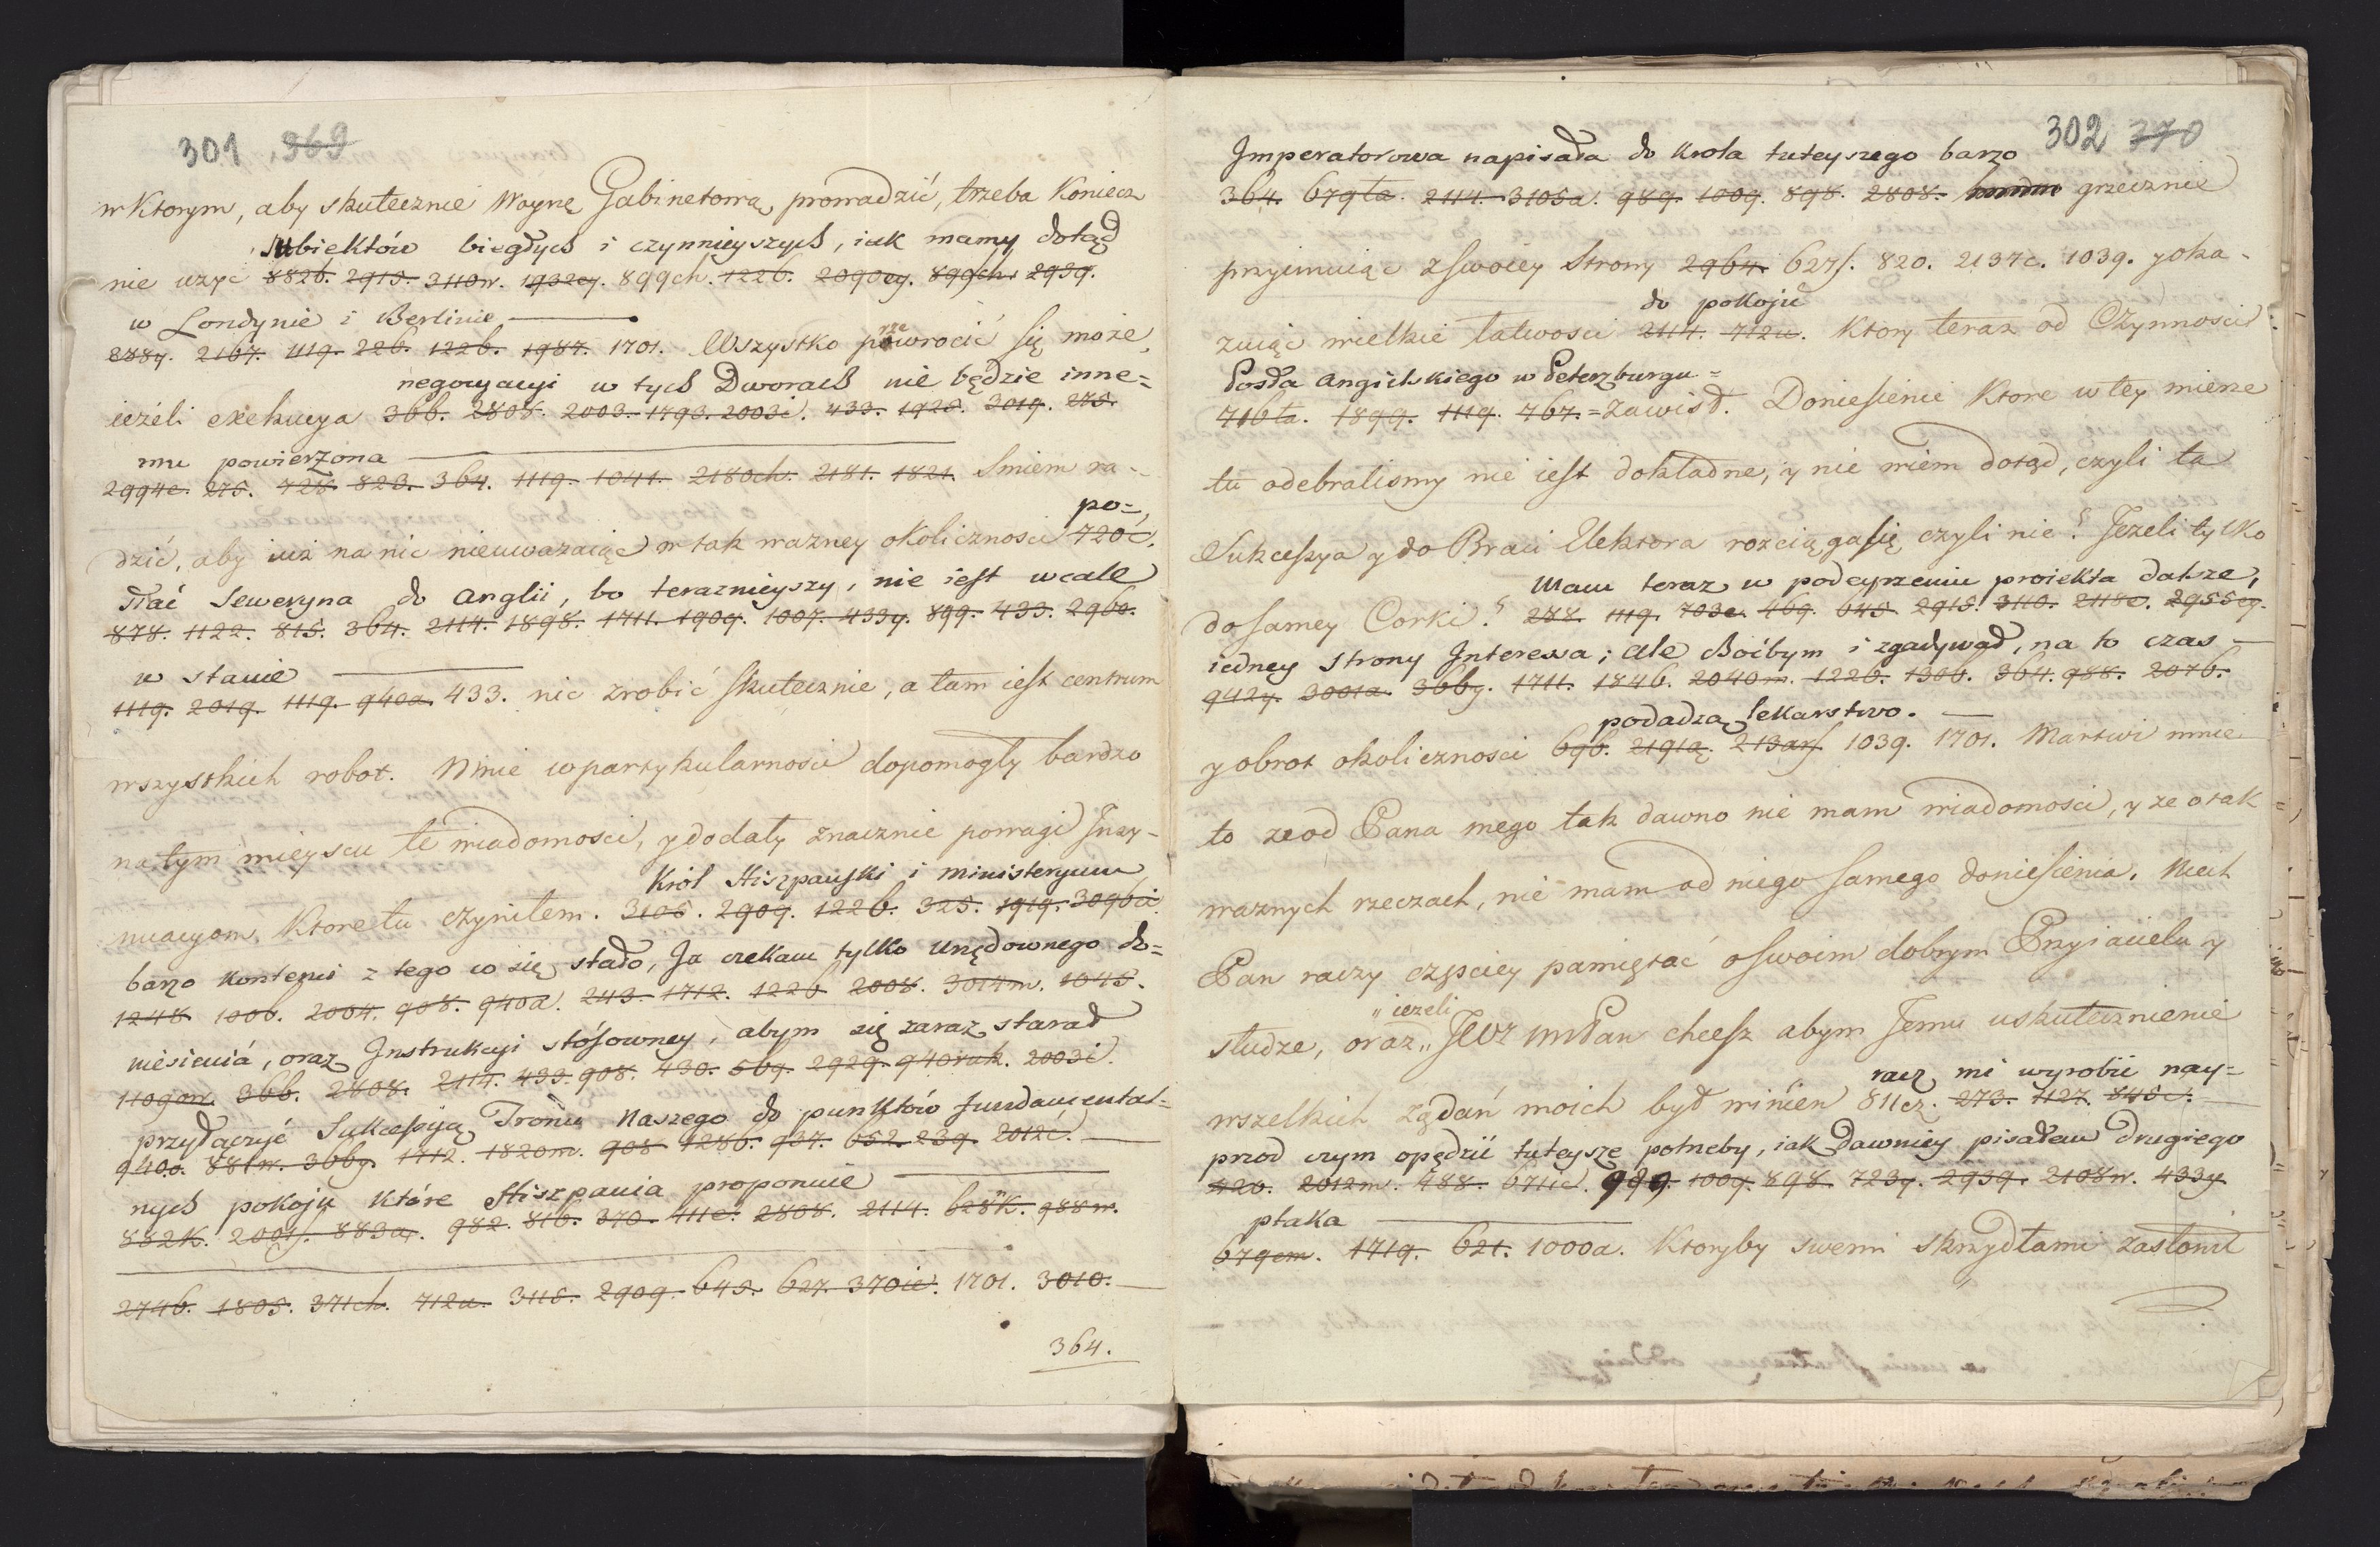 301 369
w Ktorym, aby skutecznie Woynę Gabinetową prowadzić, trzeba Koniecz
subiektów biegłych i czynnieyszych, iak mamy dotąd
nie uzyć 882b. 2913. 3110w. 1932cy. 899ch. 122b. 2090cy. 899ch. 2939.
w Londynie i Berlinie
288y. 2167. 1119. 22b. 122b. 1987. 1701. Wszystko powrocić się może,
rze
negocyacyi w tych Dworach nie będzie inne=
ieżeli exekucya 366. 2808. 2003. 1793. 2003i. 433. 1923. 3019. 275.
mu powierzona
2994e. 275. 728. 823. 364. 1119. 1041. 2180ch. 2181. 1821. Smiem ra-
po=
dzić, aby iuż na nic nieuwazaiąc w tak wazney okolicznosci 720ć.
słać Seweryna do Anglii, bo teraznieyszy, nie iest wcale
878. 1122. 815. 364. 2114. 1898. 1711. 1909. 1007. 433y. 899. 433. 2960.
w stanie
1119. 2019. 1119. 940a. 433. nic zrobić skutecznie, a tam iest centrum
wszystkich robot. Mnie w partykularnosci dopomogly bardzo
na tym mieyscu te wiadomosci, y dodaly znacznie powagi Insy-
Król Hiszpański i ministeryum
nuacyom, Ktore tu czynilem. 3105. 2909. 122b. 325. 1919. 3096ci
barzo kontenci z tego co się stało, Ja czekam tylko urzędownego do=
1248. 1006. 2004. 908. 940a. 243. 1712. 122b 2008. 3014m. 1045.
niesienia, oraz Instrukcyi stósowney, abym się zaraz starał
1109ow. 366. 2808. 2114. 433. 908. 430. 569. 2929. 940ruk. 2003i.
przyłączyć Sukcessyą Tronu Naszego do punktów fundamental=
940o. 881w. 366y. 1712. 1820m. 908. 1286. 937. 652. 239. 2012ć.
nych pokoju które Hiszpania proponuie
882k. 2001f. 883a. 982. 816. 370. 411e. 2808. 2114. 628k. 988w.
2746. 1803. 371ch. 712u. 3115. 2909. 645. 627. 370ie. 1701. 3010.
364.
302 370
Imperatorowa napisała do krola tuteyszego barzo
364. 679ta. 2114. 3105a. 989. 1009. 898. 2808. grzecznie
przyimuiąc z swoiey Strony 2964. 627f. 820. 2137c. 1039. y oka-
do pokoju
zuiąc wielkie latwosci 2114. 712u. Ktory teraz od Czynnosci
Posła Angielskiego w Peterzburgu=
716ta. 1899. 1119. 767.=zawisł. Doniesienie Ktore w tey mierze
tu odebralismy nie iest dokladne, y nie wiem dotąd, czyli ta
Sukcessya y do Braci Elektora rozciąga się, czyli nie? Jezeli tylko
Mam teraz w podeyrzeniu proiekta dalsze,
do samey Corki? 288. 1119. 703e. 469. 645. 2915. 3110. 2118c. 2955cy.
iedney strony Interessa; ale Bóibym i zgadywał, na to czas
942y. 3001a. 366y. 1711. 1846. 2040m. 122b. 1306. 364. 988. 2076.
podadzą lekarstwo.
y obrot okolicznosci 696. 2191ą. 213arf. 1039. 1701. Martwi mnie
to ze od Pana mego tak dawno nie mam wiadomosci, y ze o tak
waznych rzeczach, nie mam od niego samego doniesienia. Niech
Pan raczy częsciey pamiętać o swoim dobrym Przyiacielu y
„ iezeli
słudze, oraz „ JWr mPan chcesz abym Jemu uskutecznienie
racz mi wyrobić nay=
wszelkich żądań moich był winien 811cz. 273. 1127. 845ć.
przod czym opędzić tuteysze potrzeby, iak dawniey pisałem drugiego
420. 2012m. 488. 6711ć. 989. 1009. 898. 723y. 2939. 2108w. 433y.
ptaka
679em. 1719. 621. 1000a. Ktoryby swemi skrzydłami zasłonił